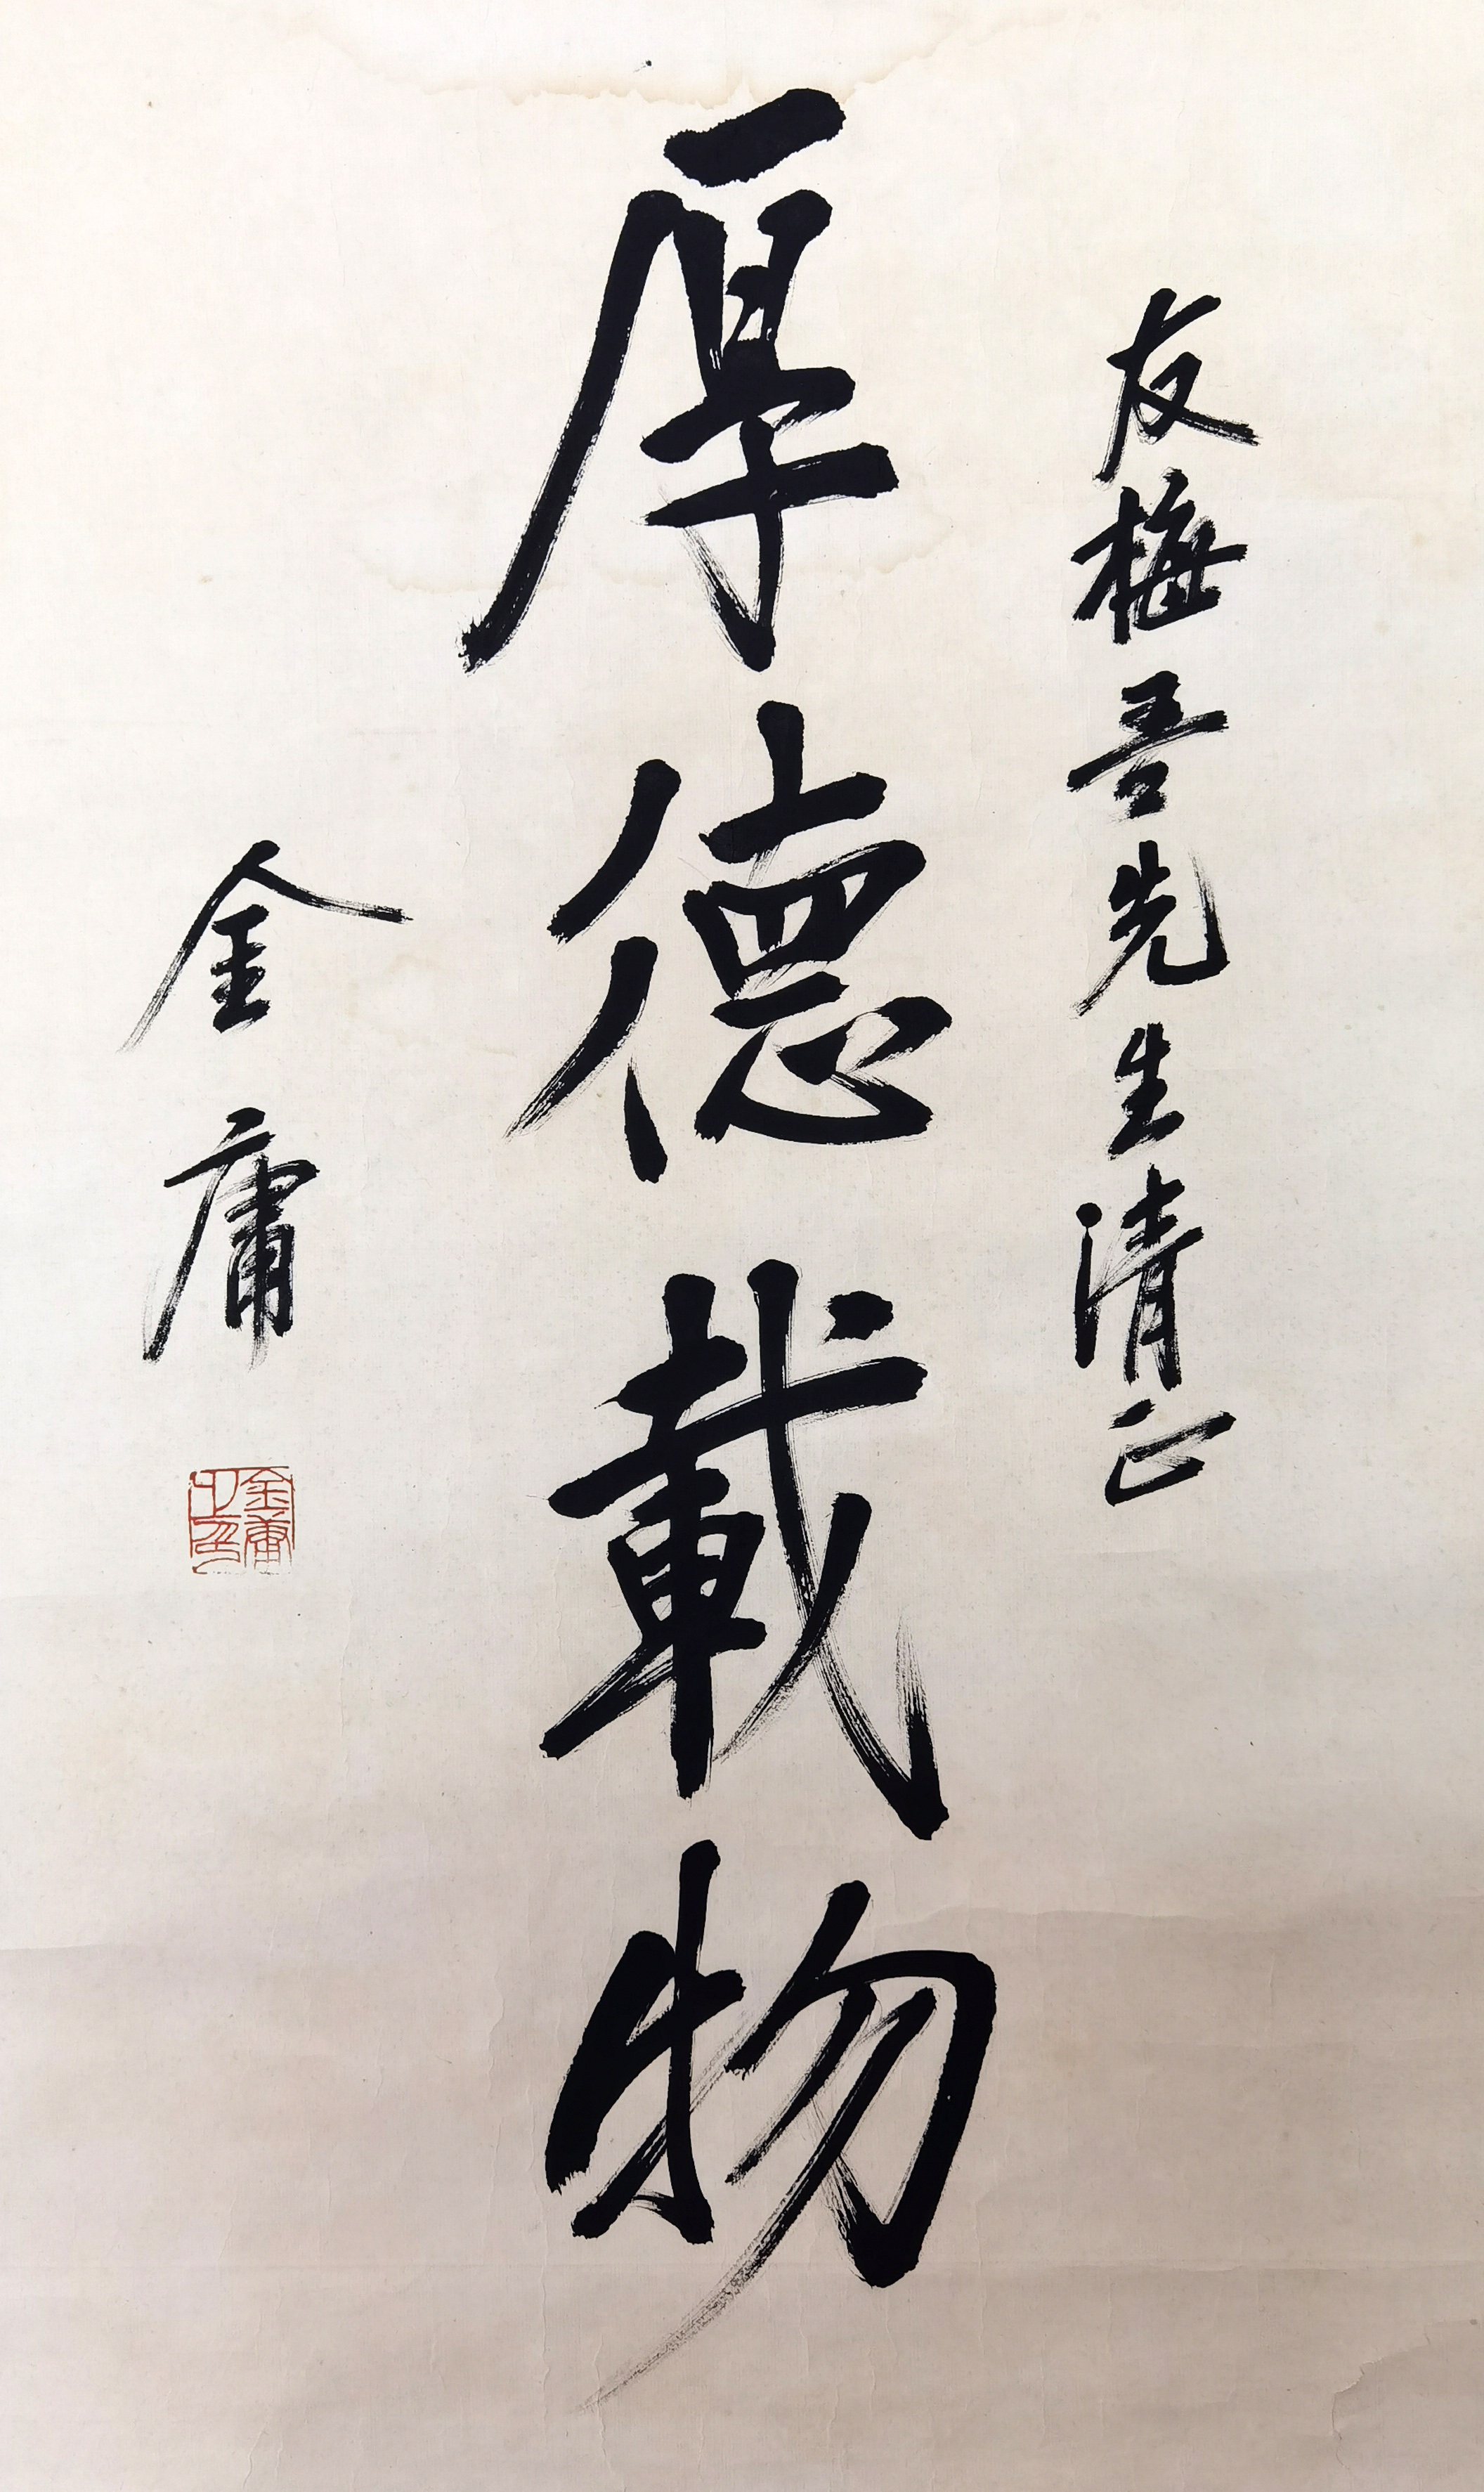 友梅吾先生清正
厚德載物
金庸
金庸之印